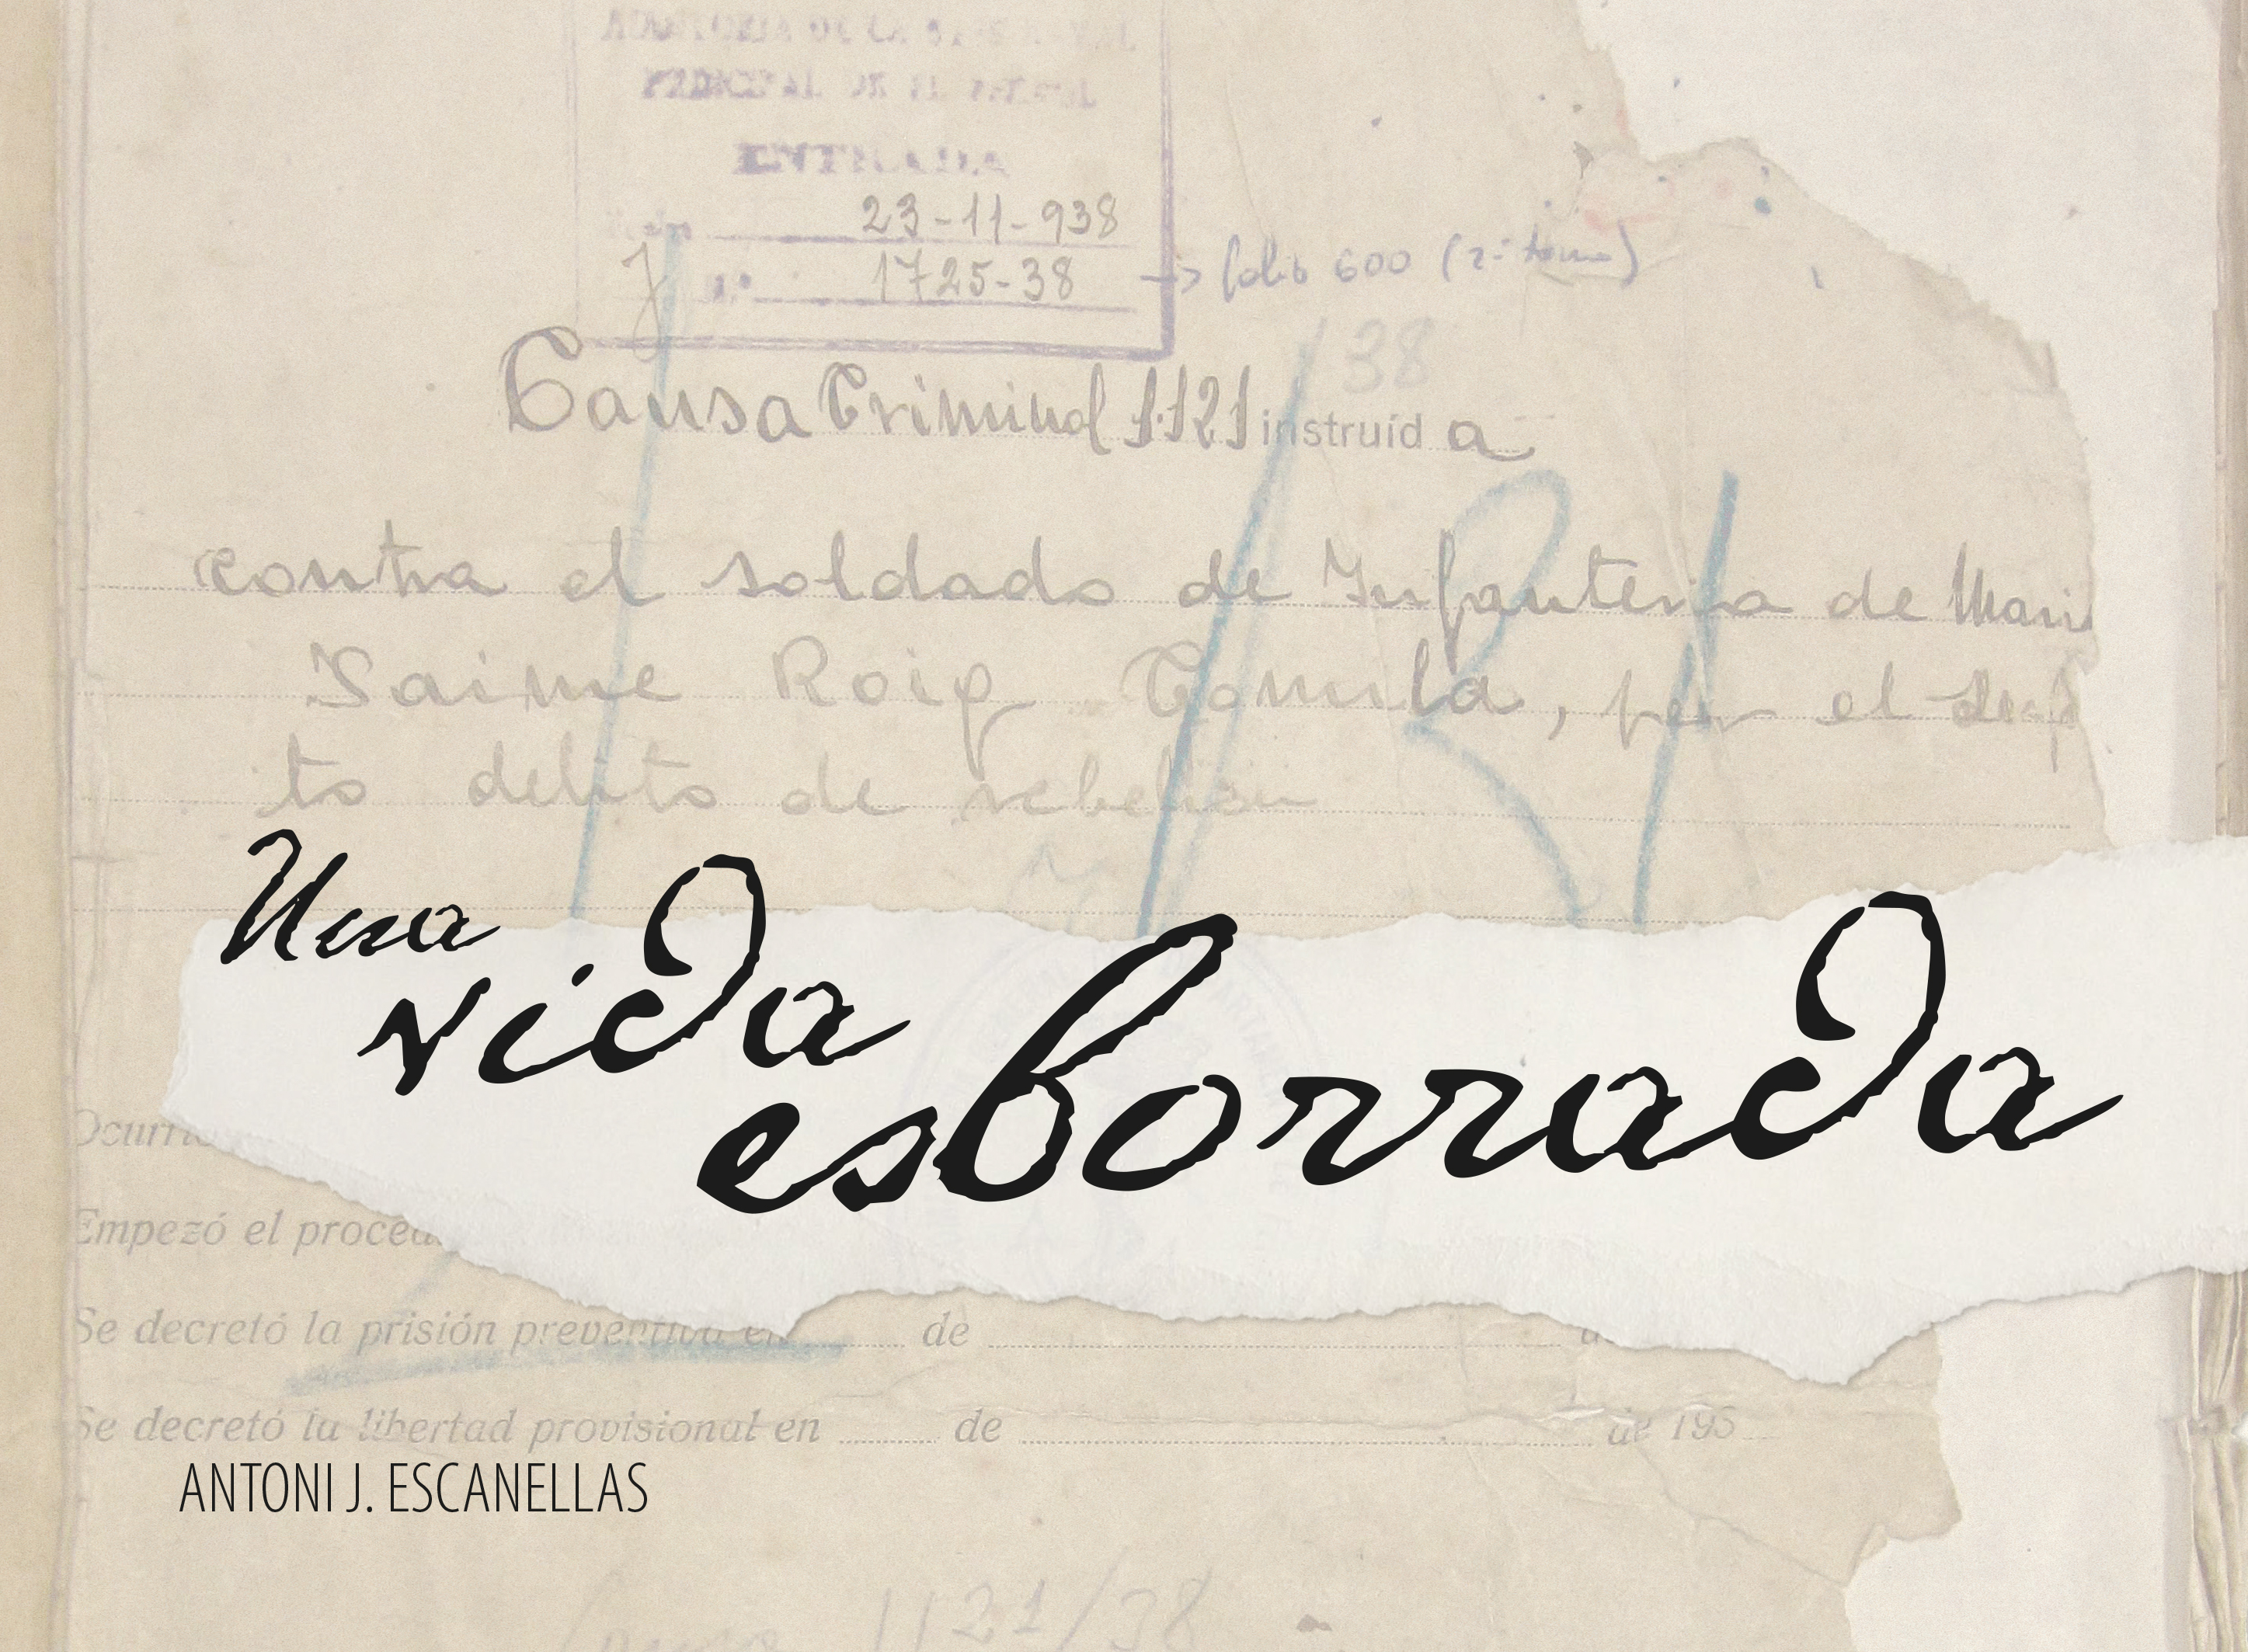 AUDITORIA DE LA BASE NAVAL
PRINCIPAL DE EL FERROL
ENTRADA
23-11-938
1725-38 → folio 600 (2º tomo)
38
Causa Criminal 1121 instruíd a
contra el soldado de Infanteria de Mari
Jaime Roig Comila, por el
to delito de rebelion
Una
vida
esborrada
Ocurrió
Empezó el proced
Se decretó la prisión preventiva en de
Se decretó la libertad provisional en de de 195
ANTONI J. ESCANELLAS
1121/38